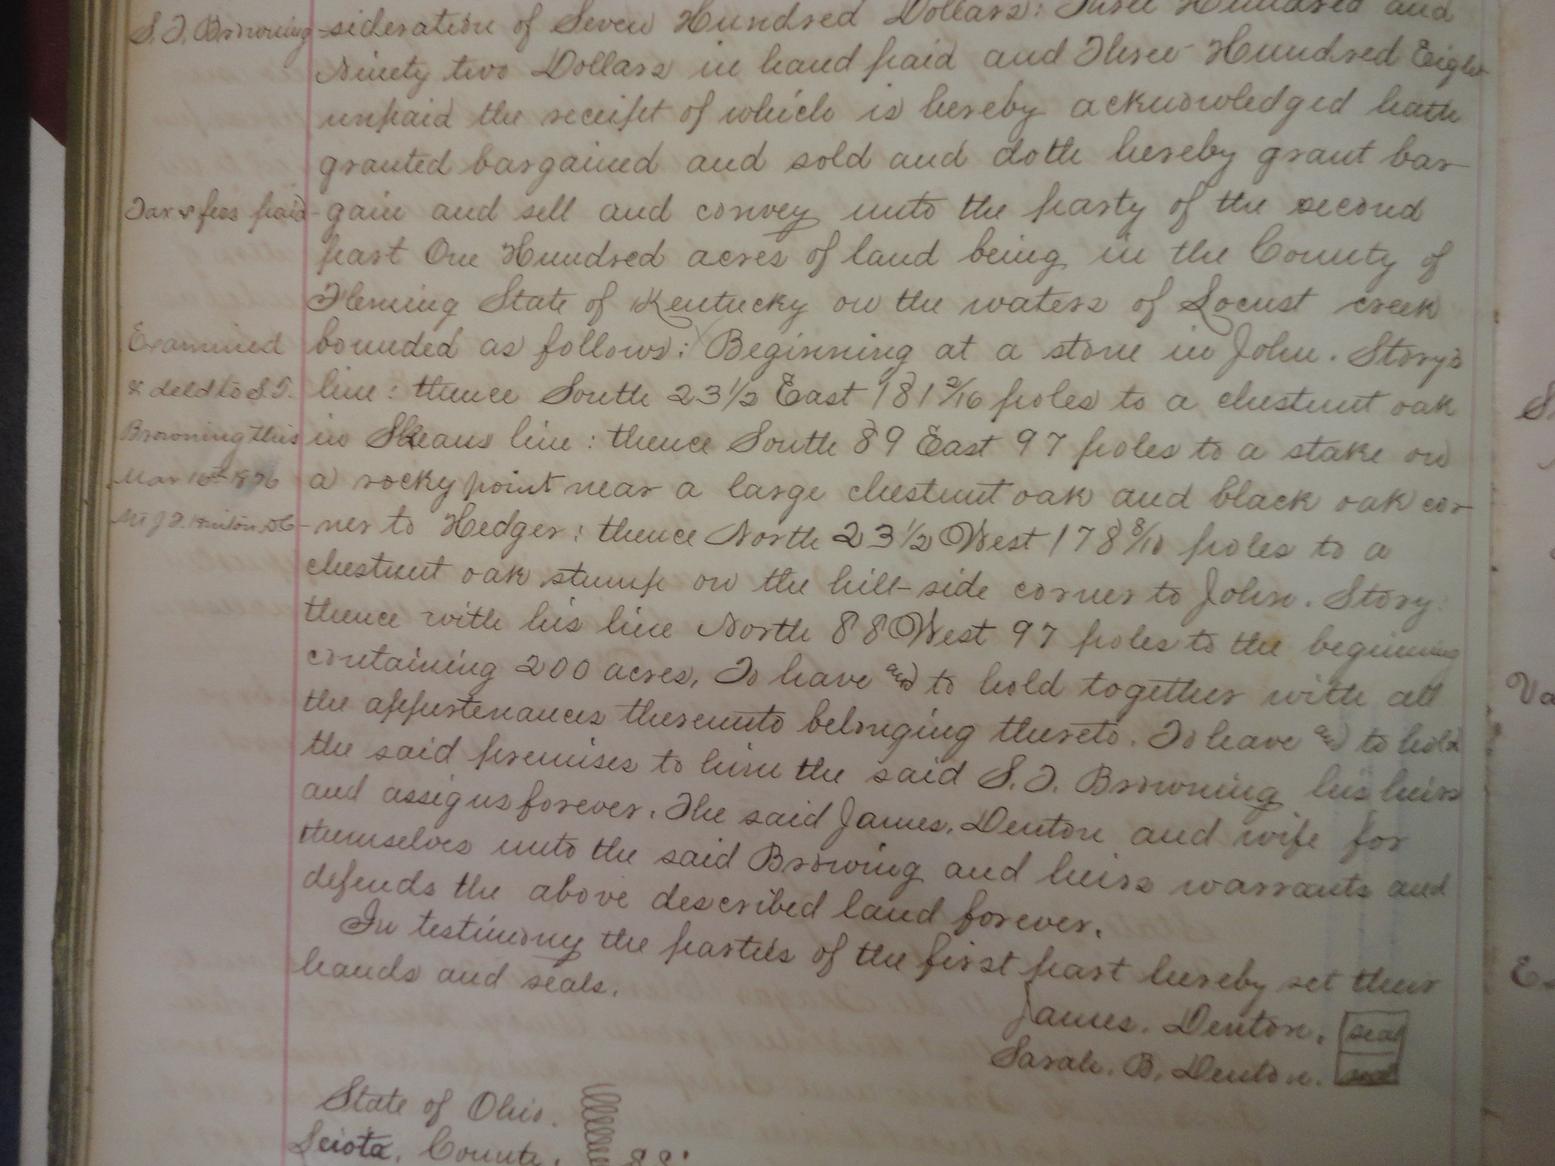 S. T. Browning -sideration of Seven Hundred Dollars: Three Hundred and
Ninety two Dollars in hand paid and Three Hundred Eight
unpaid the receipt of which is hereby acknowledged hath
granted bargained and sold and doth hereby grant bar
Tax & fees paid -gain and sell and convey unto the party of the second
part One Hundred acres of land being in the County of
Fleming State of Kentucky on the waters of Locust creek
Examined bounded as follows: Beginning at a stone in John. Story's
& deld to S.T. line: thence South 23 1/2 East 181 2/10 poles to a chestnut oak
Browning this in Skeans line: thence South 89 East 97 poles to a stake on
Mar 10th 1876 a rocky point near a large chestnut oak and black oak cor-
-ner to Hedger; thence North 23 1/2 West 178 8/10 poles to a
chestnut oak stump on the hill-side corner to John. Story
thence with his line North 88 West 97 poles to the beginning
containing 200 acres, To have and to hold together with all
the appurtenances thereunto belonging thereto. To have and to hold
the said premises to him the said S. T. Browning his heirs
and assigns forever. The said James. Denton and wife for
themselves unto the said Browing and heirs warrants and
defends the above described land forever.
In testimony the parties of the first part hereby set their
hands and seals.
James. Denton. seal
Sarah. B. Denton. seal
State of Ohio.
Sciota. County. SS.